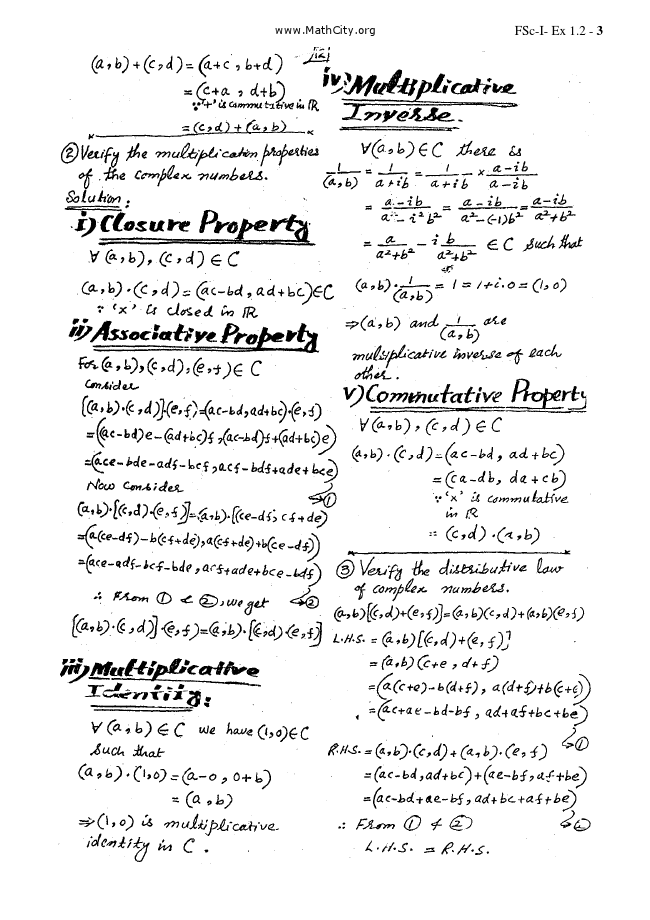 www.MathCity.org
FSc-I- Ex 1.2 - 3
(a,b)+(c,d)=(a+c , b+d)
=(c+a , d+b)
∵'+' is commutative in IR
=(c,d)+(a,b)
② Verify the multiplicaten properties
of the complex numbers.
Solution:
i) Closure Property
∀ (a,b), (c,d) ∈ C
(a,b)·(c,d)=(ac-bd, ad+bc)∈C
∵ 'x' is closed in IR
ii) Associative Property
For (a,b),(c,d),(e,f)∈ C
Consider
[(a,b)·(c,d)]·(e,f)=(ac-bd,ad+bc)·(e,f)
=((ac-bd)e-(ad+bc)f ,(ac-bd)f+(ad+bc)e)
=(ace-bde-adf-bcf,acf-bdf+ade+bce)
Now Consider ↳①
(a,b)·[(c,d)·(e,f)]=(a,b)·[(ce-df, cf+de)
=(a(ce-df)-b(cf+de),a(cf+de)+b(ce-df))
=(ace-adf-bcf-bde, acf+ade+bce-bdf)
∴ From ① & ②, we get ↳②
[(a,b)·(c,d)]·(e,f)=(a,b)·[(c,d)·(e,f)]
iii) Multiplicative
Identity:
∀ (a,b) ∈ C we have (1,0)∈C
Such that
(a,b)·(1,0)=(a-0 , 0+b)
= (a,b)
⇒(1,0) is multiplicative
identity in C .
iv) Multiplicative
Inverse.
∀(a,b)∈C there is
1/(a,b) = 1/(a+ib) = 1/(a+ib) × (a-ib)/(a-ib)
= (a-ib)/(a²-i²b²) = (a-ib)/(a²-(-1)b²) = (a-ib)/(a²+b²)
= a/(a²+b²) - i b/(a²+b²) ∈ C Such that
(a,b)·1/(a,b) = 1 = 1+i.0 = (1,0)
⇒(a,b) and 1/(a,b) are
multiplicative inverse of each
other.
v) Commutative Property
∀(a,b), (c,d)∈C
(a,b)·(c,d)=(ac-bd, ad+bc)
=(ca-db, da+cb)
∵ 'x' is commutative
in IR
= (c,d)·(a,b)
③ Verify the distributive law
of complex numbers.
(a,b)[(c,d)+(e,f)]=(a,b)(c,d)+(a,b)(e,f)
L.H.S. = (a,b)[(c,d)+(e,f)]
= (a,b)(c+e , d+f)
=(a(c+e)-b(d+f), a(d+f)+b(c+e))
=(ac+ae-bd-bf, ad+af+bc+be)
↳①
R.H.S.=(a,b)·(c,d)+(a,b)·(e,f)
=(ac-bd,ad+bc)+(ae-bf,af+be)
=(ac-bd+ae-bf, ad+bc+af+be)
∴ From ① & ② ↳②
L.H.S. = R.H.S.